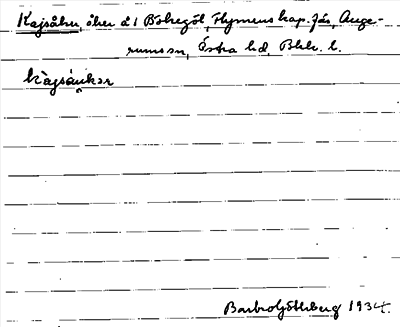 Kajsåkrn, åker å 1 Bökegöl, Flymens kap.förs, Auge-
rums sn, Östra hd, Blek. l.
kàjsåṇkər
Barbro Göthberg 1934.